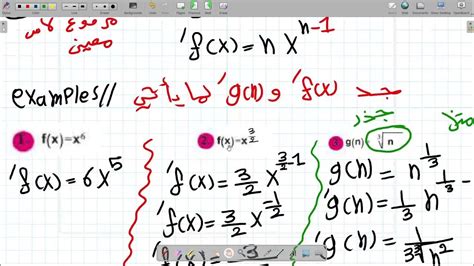 مرفوع لأس
معين
'f(x)=n x^{n-1}
examples// جد 'f(x) و 'g(n) لما يأتي
جذر
1 f(x)=x⁶
'f(x)=6x⁵
2. f(x)=x^{3/2}
'f(x)=3/2 x^{3/2-1}
'f(x)=3/2 x^{-1/2}
3
3 g(n)=∛n
g(n)=n^{1/3}
'g(n)=1/3 n^{1/3-
'g(n)=1/3∛n²